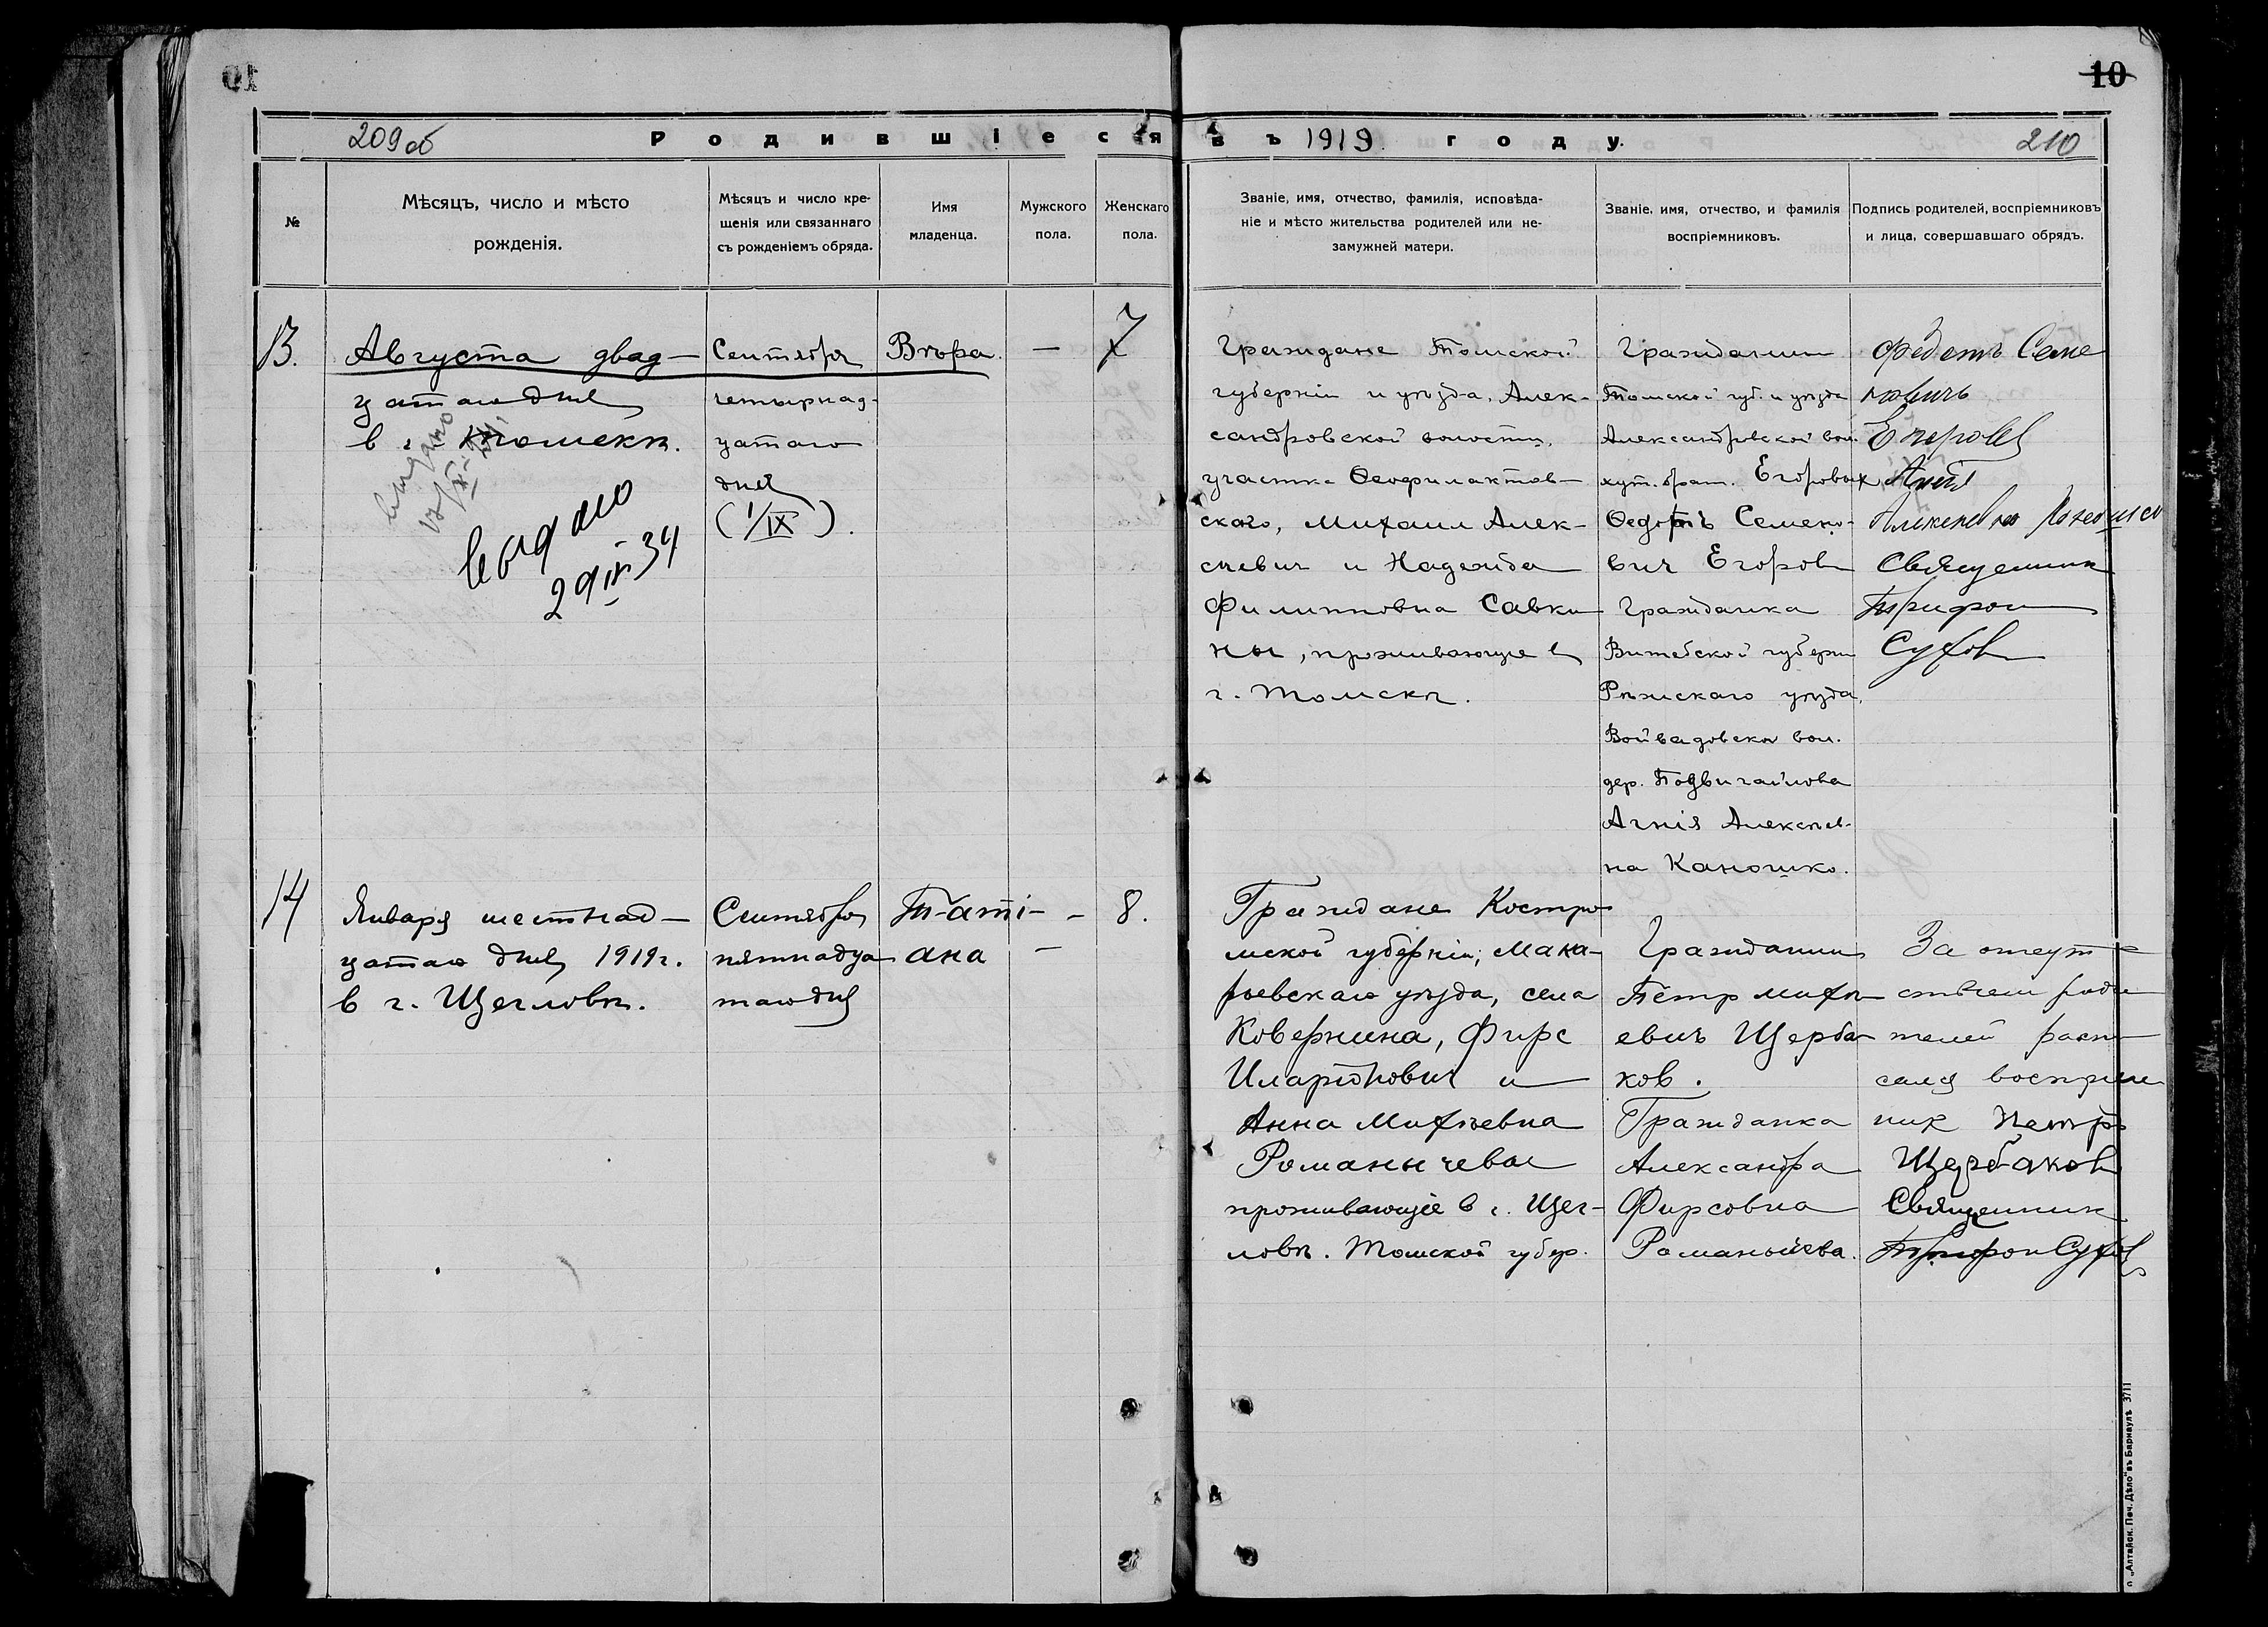 10
10
209об
Родившіеся
въ 1919 году.
210
№
Мѣсяцъ, число и мѣсто
рожденія.
Мѣсяцъ и число кре-
щенія или связаннаго
съ рожденіемъ обряда.
Имя
младенца.
Мужского
пола.
Женскаго
пола.
Званіе, имя, отчество, фамилія, исповѣда-
ніе и мѣсто жительства родителей или не-
замужней матери.
Званіе, имя, отчество, и фамилія
воспріемниковъ.
Подпись родителей, воспріемниковъ
и лица, совершавшаго обрядъ.
13.
Августа двад-
цатаго дня
в г. Томскѣ.
выдано
выдано
29 IV 34
Сентября
четырнад-
цатаго
дня
(1/IX).
Вѣра.
—
7
Граждане Томской
губерніи и уѣзда, Алек-
сандровской волости,
участка Ѳеофилактов-
скаго, Михаил Алек-
сѣевич и Надежда
Филипповна Савки-
ны, проживающие в
г. Томскѣ.
Гражданин
Томской губ. и уѣзда
Александровской вол.
хут. брат. Егоровых
Ѳедотъ Семено-
вич Егоров
Гражданка
Витебской губерн
Рѣжискаго уѣзда,
вол.
дер.
Агнія Алексѣев-
на Каношко.
Федотъ Семе
новичь
Егоров
Агнія
Алексевна
Священник
Трифон
Сухов
14
Января шестнад-
цатаго дня 1919 г.
в г. Щегловѣ.
Сентября
пятнадца
таго дня
Таті-
ана
-
—
8.
Граждане Костро-
мской губерніи, Мака-
рьевскаго уѣзда, села
Ковернина, Фирс
Иларіонович и
Анна Михѣевна
Романычевы
проживающіе в г. Щег-
ловѣ. Томской губер.
Гражданин
Петр Михѣ-
евичъ Щерба-
ков.
Гражданка
Александра
Фирсовна
Романычева.
За отсут-
ствіем роди
телей распи
сался восприем
ник Петръ
Щербаков
Священник
Трифон Сухов
„Алтайск. Печ. Дѣло“ въ Барнаулѣ 3/11